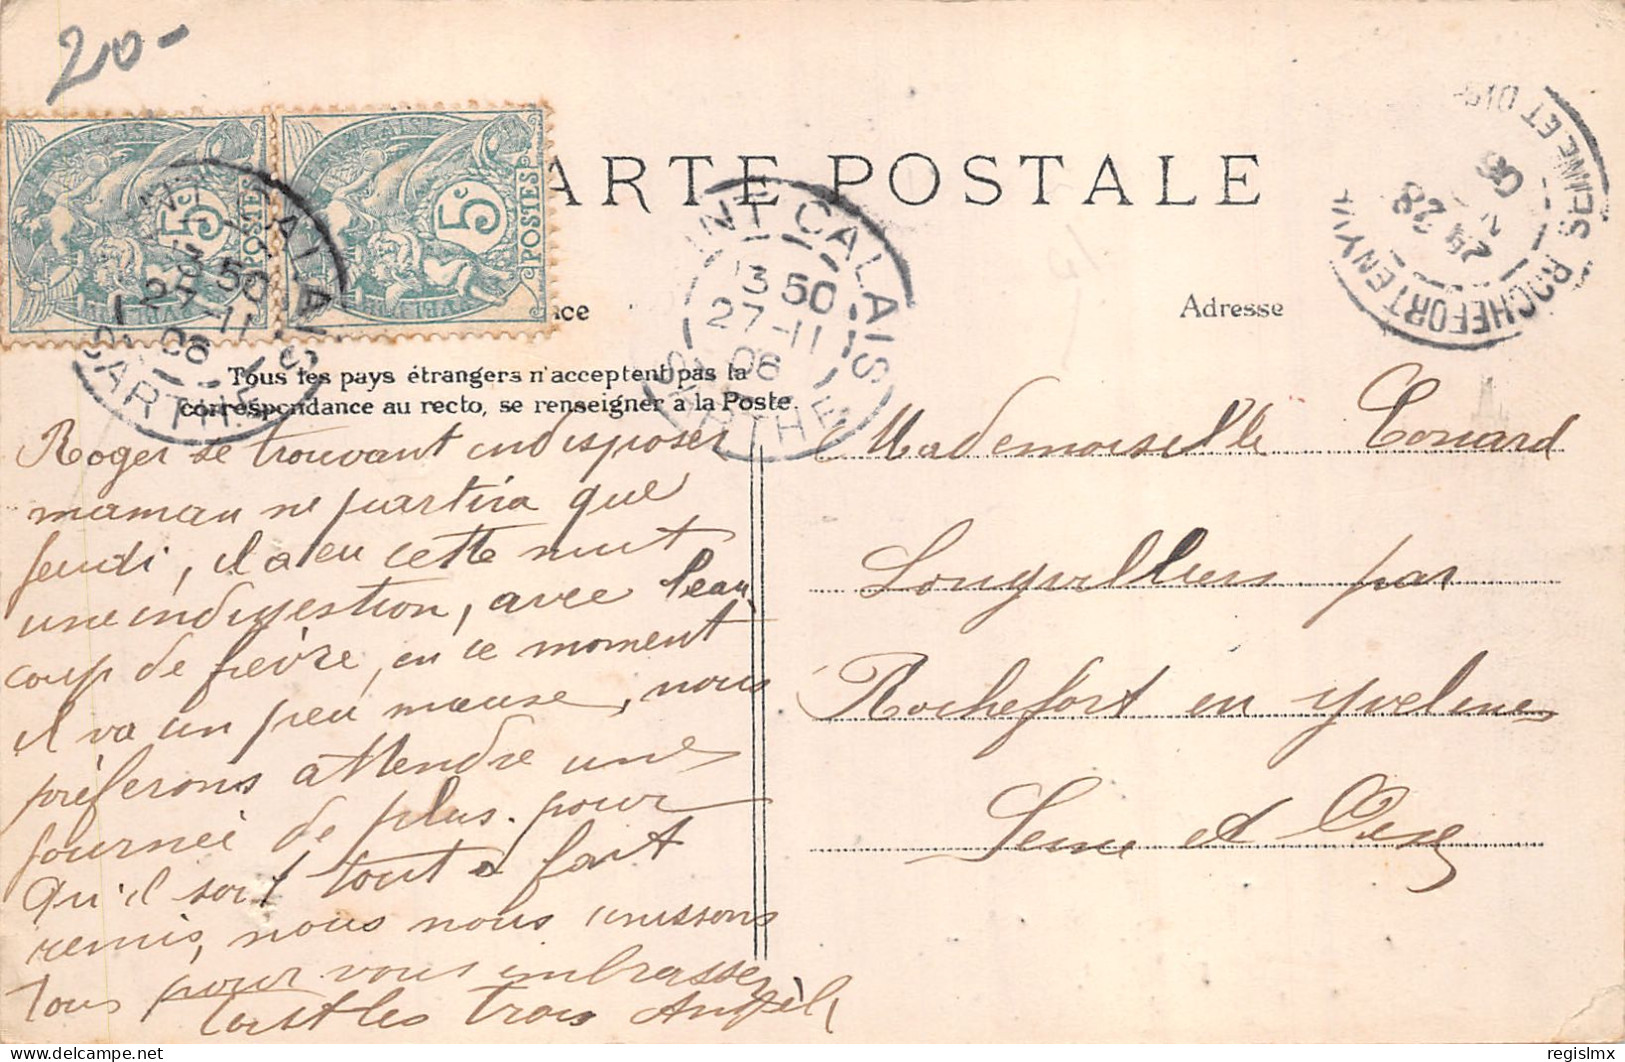 20-
CARTE POSTALE
5c
POSTES
5c
POSTES
SAINT CALAIS
13 50
27-11
06
SARTHE
SAINT CALAIS
13 50
27-11
06
SARTHE
ROCHEFORT EN YV
SEINE ET OISE
28
06
Adresse
Tous les pays étrangers n'acceptent pas la
correspondance au recto, se renseigner à la Poste.
Roger se trouvant indisposer
maman ne partira que
jeudi, il a eu cette nuit
une indigestion, avec beau
coup de fièvre, en ce moment
il va un peu mieuse, nous
prèferons attendre une
journeé de plus. pour
qu'il soit tout à fait
remis, nous nous unissons
tous pour vous embrasser
tous les trois Angèle
Mademoiselle
Longvilliers par
Rochefort en Yvelines
Seine et Oise
delcampe.net
regislmx